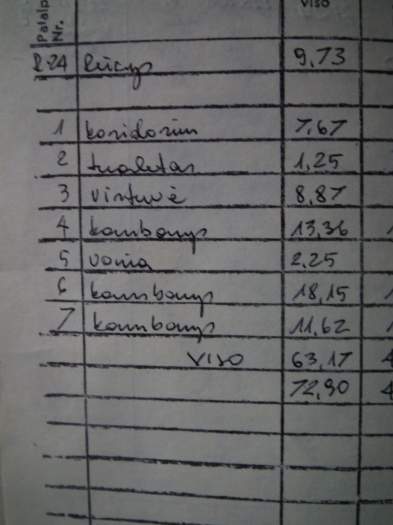 Patalp Nr. Viso
R-24 Rūsys 9,73
1 koridorius 7,67
2 tualetas 1,25
3 virtuvė 8,87
4 kambarys 13,36
5 vonia 2,25
6 kambarys 18,15
7 kambarys 11,62
VISO 63,17
72,90